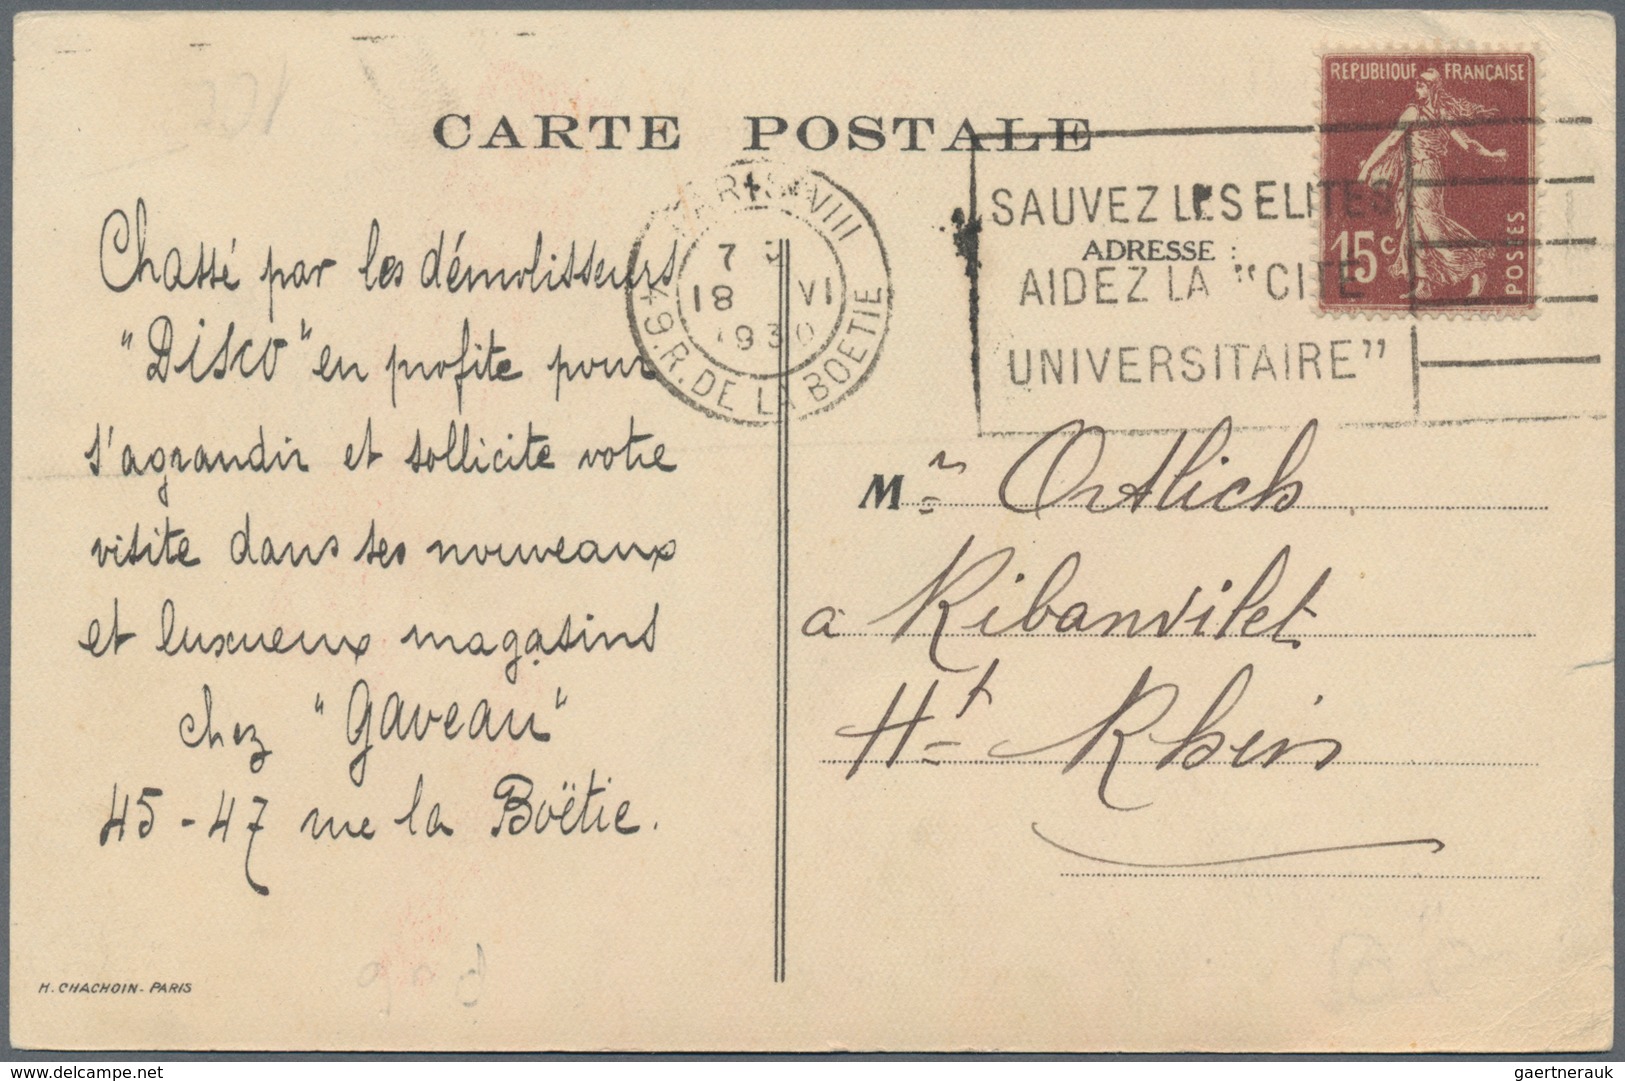 CARTE POSTALE
REPUBLIQUE FRANÇAISE
15c
POSTES
PARIS VIII
7
18 VI
1930
49.R. DE LA BOETIE
SAUVEZ LES ELITES
AIDEZ LA "CITE
UNIVERSITAIRE"
ADRESSE :
Chassé par les démolisseurs
"Disco" en profite pour
s'agrandir et sollicite votre
visite dans ses nouveaux
et luxueux magasins
chez "Gaveau"
45-47 rue la Boëtie.
Mr Ortlieb
a Ribanvilet
Ht Rhin
H. CHACHOIN- PARIS
www.delcampe.net
gaertnerauk